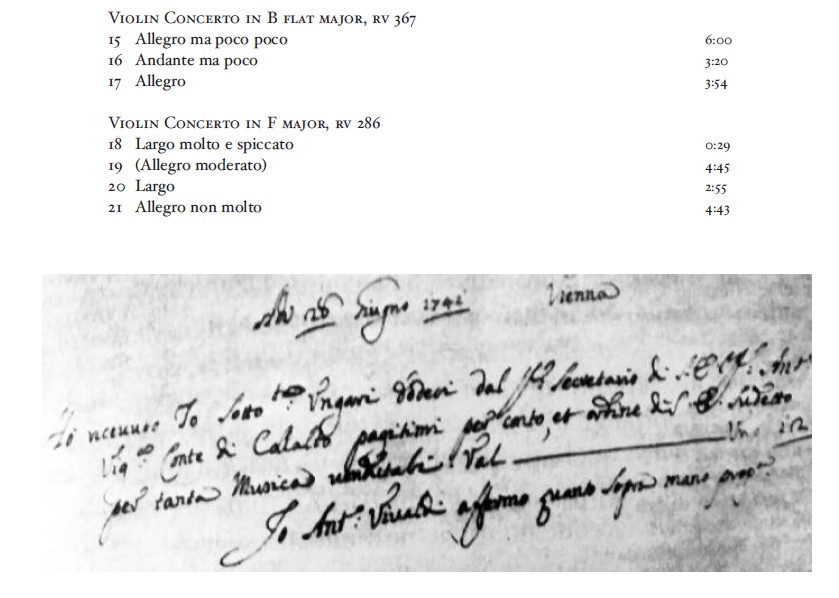 Violin Concerto in B flat major, rv 367
15 Allegro ma poco poco 6:00
16 Andante ma poco 3:20
17 Allegro 3:54
Violin Concerto in F major, rv 286
18 Largo molto e spiccato 0:29
19 (Allegro moderato) 4:45
20 Largo 2:55
21 Allegro non molto 4:43
Giugno 1741 Vienna
Io sotto Ungari dodeci dal Secretario di Ant
Conte di Calalto pagatimi per conto, et ordine di sudetto
per tanta Musica Val
Io Ant.º Vivaldi affermo quanto sopra mano prop.ª